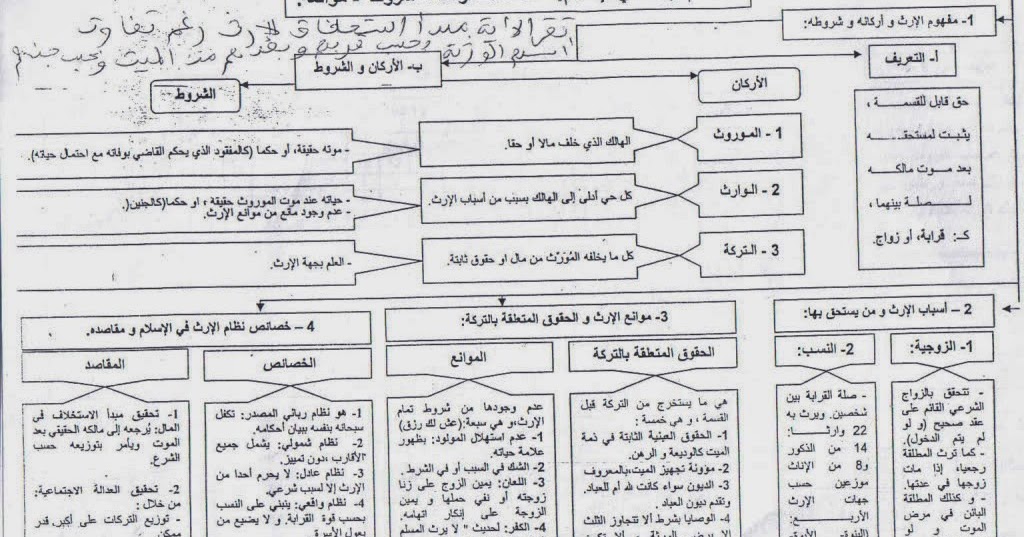 تقر الآية مبدأ استحقاق الإرث رغم تفاوت
1- مفهوم الإرث و أركانه و شروطه:
أ- التعريف
ب- الأركان و الشروط
الأركان
الشروط
حق قابل للقسمة ،
يثبت لمستحقه
بعد موت مالكه
لصلة بينهما ،
كـ: قرابة، أو زواج.
1 - الموروث
الهالك الذي خلف مالا أو حقا.
- موته حقيقة، أو حكما (كالمفقود الذي يحكم القاضي بوفاته مع احتمال حياته).
2 - الوارث
كل حي أدلى إلى الهالك بسبب من أسباب الإرث.
- حياته عند موت الموروث حقيقة ، أو حكما(كالجنين).
- عدم وجود مانع من موانع الإرث.
3 - التركة
كل ما يخلفه المُوَرِّث من مال او حقوق ثابتة.
- العلم بجهة الإرث.
2 – أسباب الإرث و من يستحق بها:
1- الزوجية:
- تتحقق بالزواج
الشرعي القائم على
عقد صحيح (و لو
لم يتم الدخول).
- كما ترث المطلقة
رجعيا، إذا مات
زوجها في عدتها.
- و كذلك المطلقة
البائن في مرض
الموت و لو
2- النسب:
- صلة القرابة بين
شخصين. ويرث به
22 وارثا:
14 من الذكور
و8 من الإناث
موزعين حسب
جهات الإرث
الأربع:
(البنوة- الأبوة-
3- موانع الإرث و الحقوق المتعلقة بالتركة:
الحقوق المتعلقة بالتركة
هي ما يستخرج من التركة قبل
القسمة ، و هي خمسة :
1- الحقوق العينية الثابتة في ذمة
الميت كالوديعة و الرهن.
2- مؤونة تجهيز الميت،بالمعروف
3- الديون سواء كانت لله أم للعباد.
وتقدم ديون العباد.
4- الوصايا بشرط ألا تتجاوز الثلث
الموانع
عدم وجودها من شروط تمام
الإرث،و هي سبعة:(عش لك رزق)
1- عدم استهلال المولود: بظهور
علامة حياته.
2- الشك في السبب أو في الشرط.
3- اللعان: يمين الزوج على زنا
زوجته أو نفي حملها و يمين
الزوجة على إنكار اتهامه.
4- الكفر: لحديث " لا يرث المسلم
4 – خصائص نظام الإرث في الإسلام و مقاصده.
الخصائص
1- هو نظام رباني المصدر: تكفل
سبحانه بنفسه ببيان أحكامه.
2- نظام شمولي: يشمل جميع
الأقارب ،دون تمييز.
3- نظام عادل: لا يحرم أحدا من
الإرث إلا لسبب شرعي.
4- نظام واقعي: ينبني على النسب
بحسب قوة القرابة. و لا يضيع من
يعول الأسرة
المقاصد
1- تحقيق مبدأ الاستخلاف في
المال: يُرجعه إلى مالكه الحقيقي بعد
الموت ويأمر بتوزيعه حسب
الشرع.
2- تحقيق العدالة الاجتماعية:
من خلال :
- توزيع التركات على أكبر قدر
ممكن